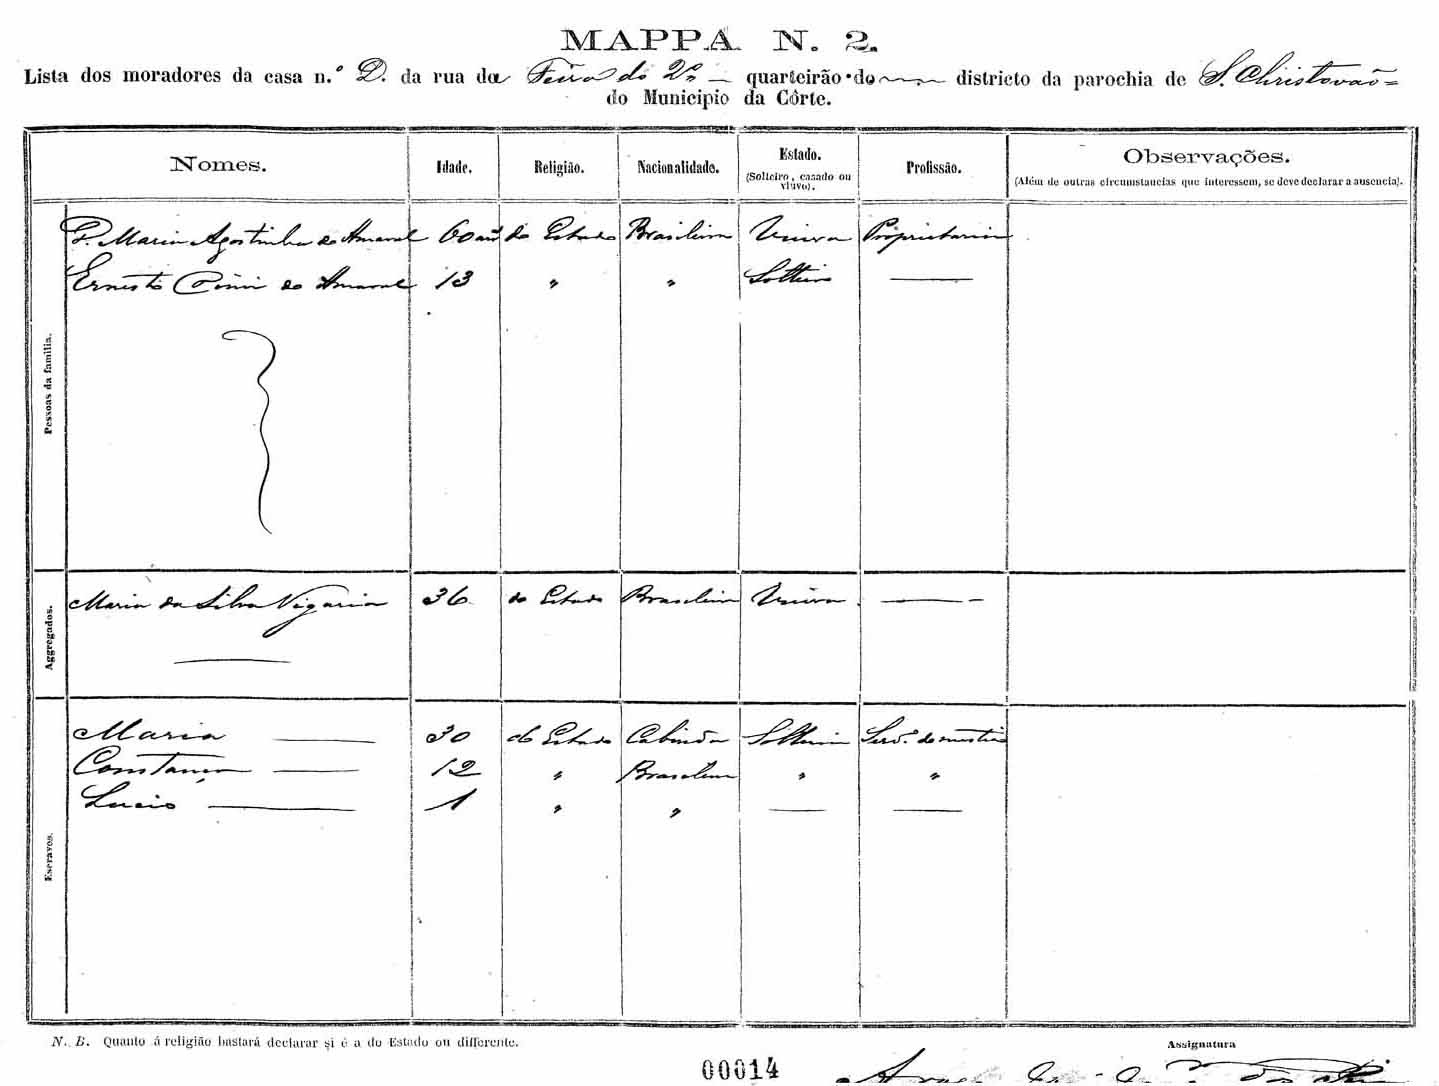 MAPPA N. 2.
Lista dos moradores da casa n.º D. da rua da Feira do 2º quarteirão do districto da parochia de S. Christovão
do Municipio da Côrte.
Nomes. Idade. Religião. Nacionalidade. Estado. (Solteiro, casado ou viuvo). Profissão. Observações. (Além de outras circumstancias que interessem, se deve declarar a ausencia).
Pessoas da familia.
Maria Agostinha do Amaral 60 do Estado Brasileira Viuva Proprietaria
Ernesto do Amaral 13 " " Solteiro —
Aggregados.
Maria da Silva Vigaria 36 do Estado Brasileira Viuva —
Escravos.
Maria — 30 do Estado Cabinda Solteira Serv.º domestico
Constança — 12 " Brasileira " "
Lucio — 1 " " — —
N. B. Quanto á religião bastará declarar si é a do Estado ou differente.
Assignatura
00014